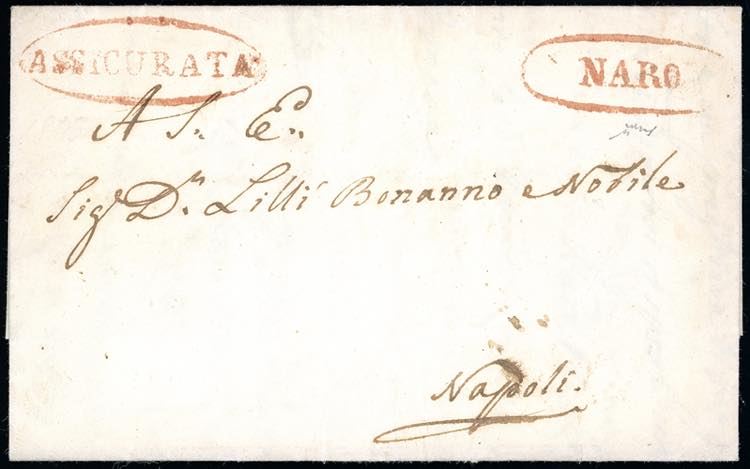 ASSICURATA
NARO
A S. E.
Sig.r D.n Lillì Bonanno e Nobile
Napoli.